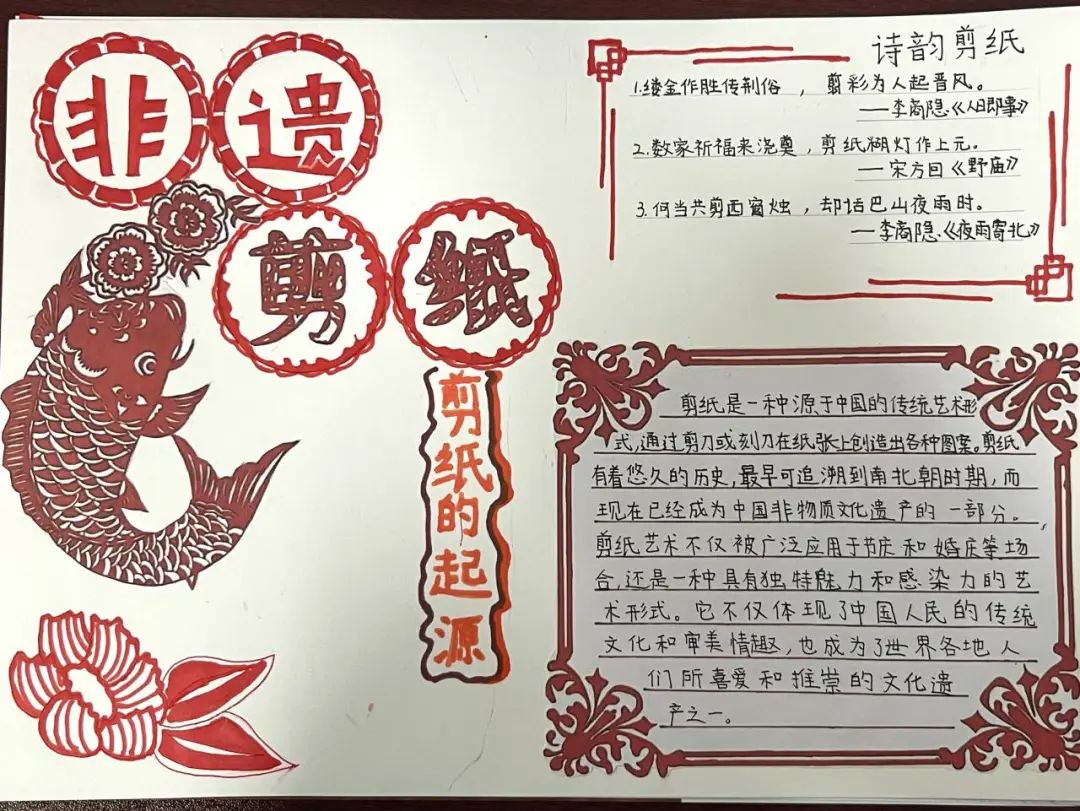 非遗
剪纸
诗韵剪纸
1.缕金作胜传荆俗，剪彩为人起晋风。
——李商隐《人日即事》
2.数家祈福来浇奠，剪纸糊灯作上元。
——宋方回《野庙》
3.何当共剪西窗烛，却话巴山夜雨时。
——李商隐《夜雨寄北》
剪纸的起源
剪纸是一种源于中国的传统艺术形
式,通过剪刀或刻刀在纸张上创造出各种图案。剪纸
有着悠久的历史,最早可追溯到南北朝时期,而
现在已经成为中国非物质文化遗产的一部分。
剪纸艺术不仅被广泛应用于节庆和婚庆等场
合,还是一种具有独特魅力和感染力的艺
术形式。它不仅体现了中国人民的传统
文化和审美情趣,也成为了世界各地人
们所喜爱和推崇的文化遗
产之一。